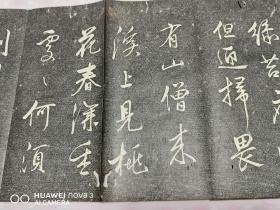 綠苔
但迎掃畏
有山僧来
溪上見桃
花春深
何須
到
HUAWEI nova 3
AI CAMERA